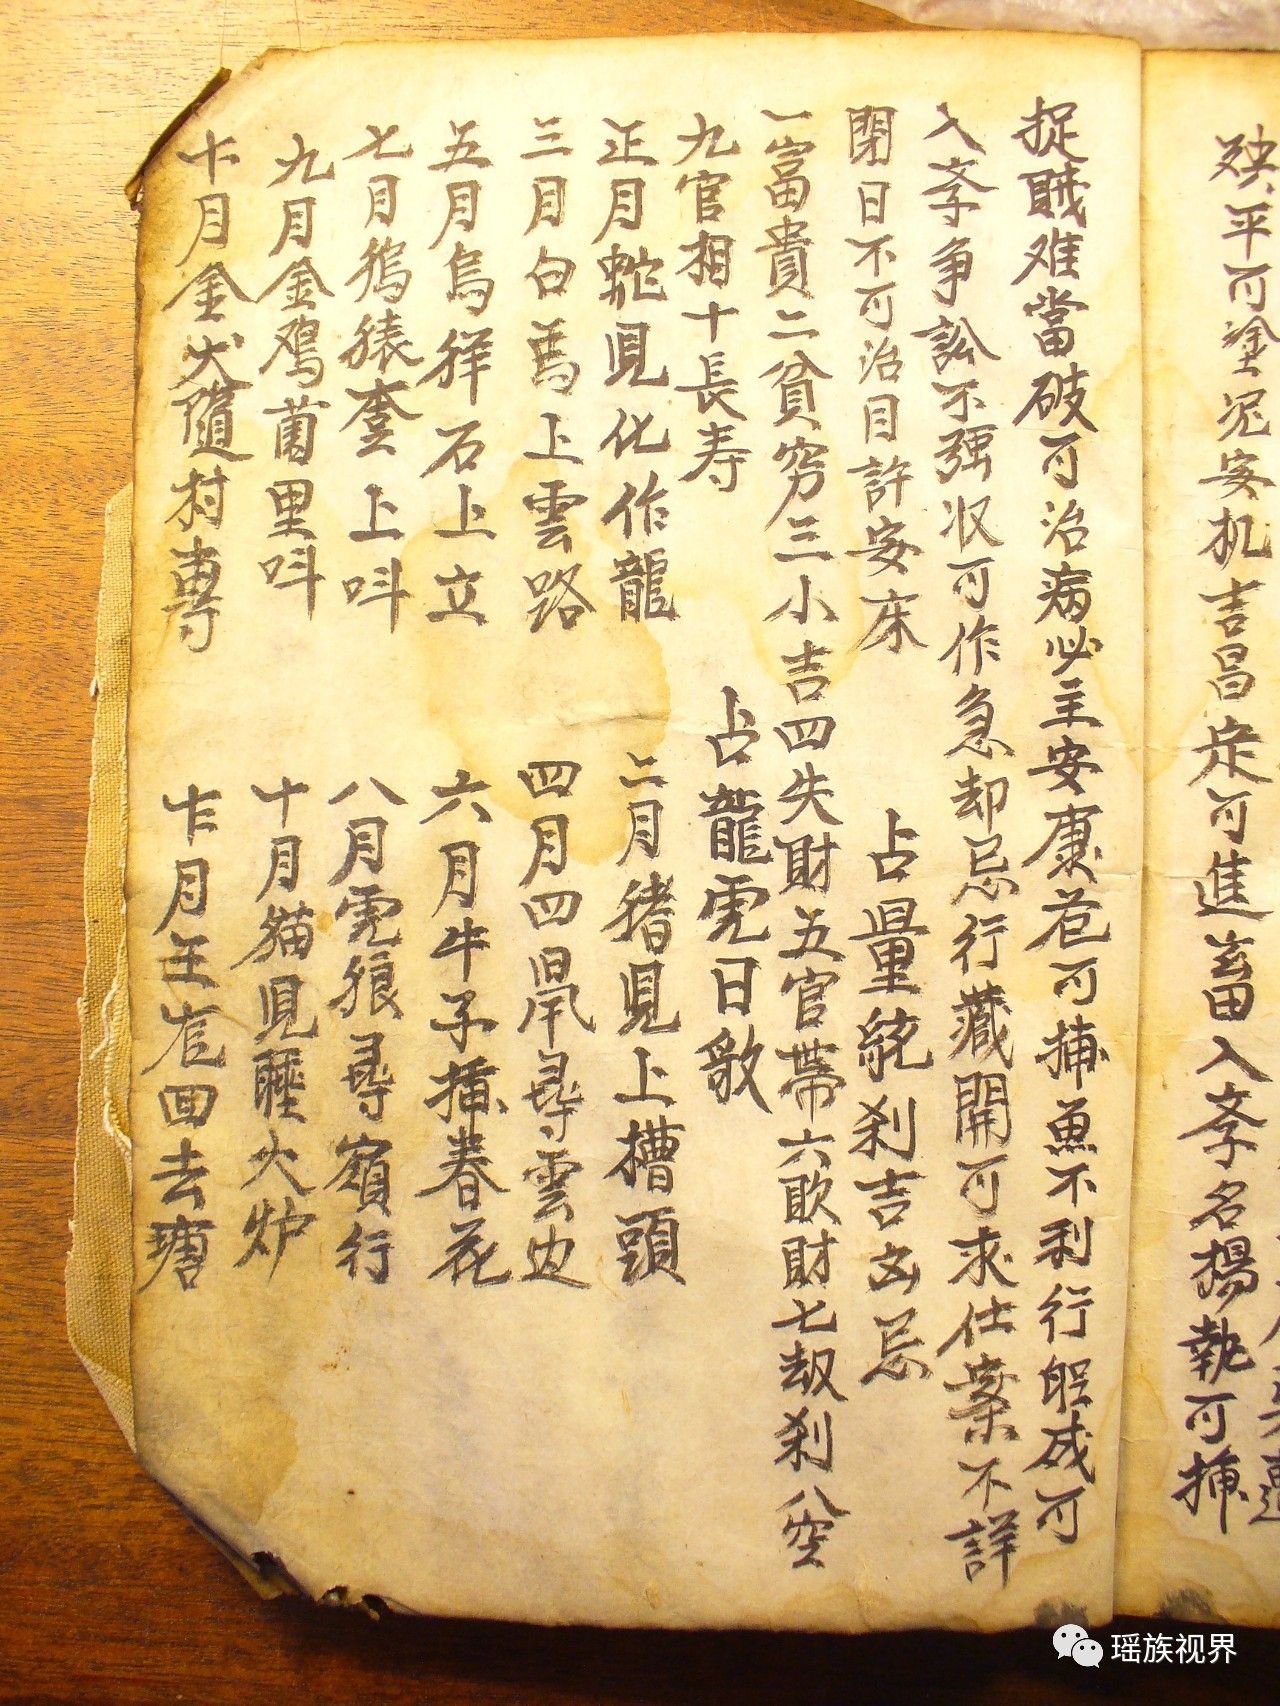 殃平可塗泥安机吉昌定可進畜入孝名揚執可捕
捉賊难當破可治病必主安康危可捕魚不利行舡成可
入孝争訟不强收可作急却忌行藏開可求仕案不詳
閉日不可治目許安床
占量統刹吉凶忌
一富貴二貧窮三小吉四失財五官帶六欧財七劫刹八空
九官相十長寿
占龍虎日歌
正月蛇見化作龍 二月猪見上槽頭
三月白馬上雲路 四月四鼠尋雲边
五月烏羊石上立 六月牛子插春花
七月猿上呌 八月虎狼尋嶺行
九月金鳮菌里呌 十月貓見睡火炉
十月金犬隨村專 月主 回去塘
瑶族视界